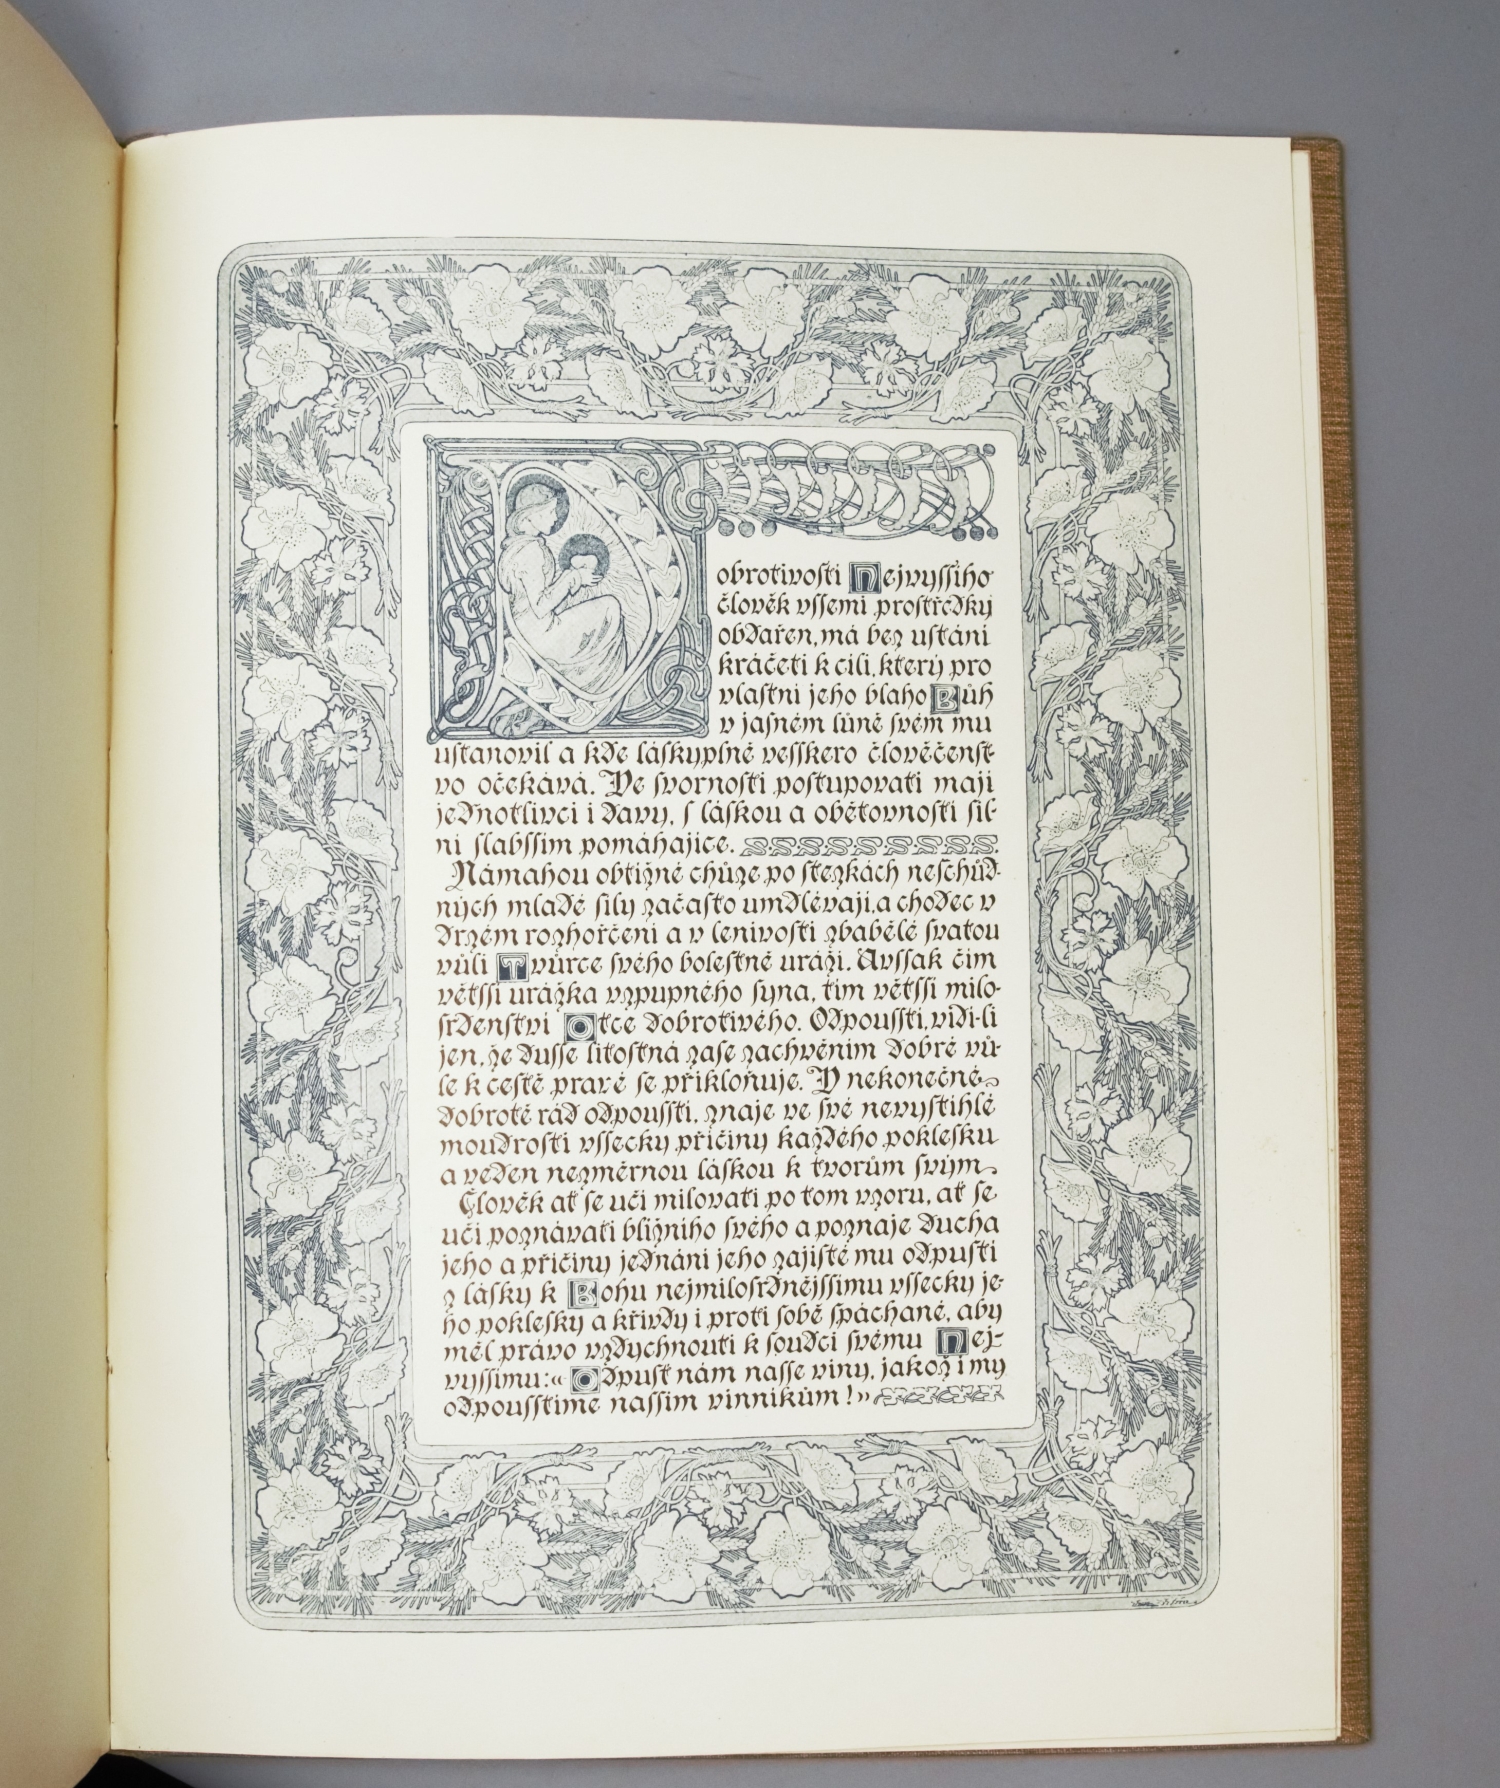 Dobrotivosti Nejvyššího
člověk všemi prostředky
obdařen, má bez ustání
kráčeti k cíli, který pro
vlastní jeho blaho Bůh
v jasném lůně svém mu
ustanovil a kde láskyplně vesškero člověčenst
vo očekává. Ve svornosti postupovati mají
jednotlivci i davy, s láskou a obětovností sil-
ní slabšším pomáhajíce.
Námahou obtížné chůze po stezkách neschůd-
ných mladé síly začasto umdlévají, a chodec v
drzém rozhořčení a v lenivosti zbabělé svatou
vůli Tvůrce svého bolestně uráží. Avsšak čím
větsší urážka vzpupného syna, tím větsší milo-
srdenství Otce dobrotivého. Odpousští, vidí-li
jen, že dusše lítostná zase zachvěním dobré vů-
le k cestě pravé se přikloňuje. V nekonečné
dobrotě rád odpousští, znaje ve své nevystihlé
moudrosti vssecky příčiny každého poklesku
a veden nezměrnou láskou k tvorům svým
Člověk ať se učí milovati po tom vzoru, ať se
učí poznávati bližního svého a poznaje ducha
jeho a příčiny jednání jeho zajisté mu odpustí
z lásky k Bohu nejmilosrdnějssímu vssecky je-
ho poklesky a křivdy i proti sobě spáchané, aby
měl právo vzdychnouti k soudci svému Nej-
vyssímu: «Odpusť nám nasse viny, jakož i my
odpousstíme nassim vinníkům!»